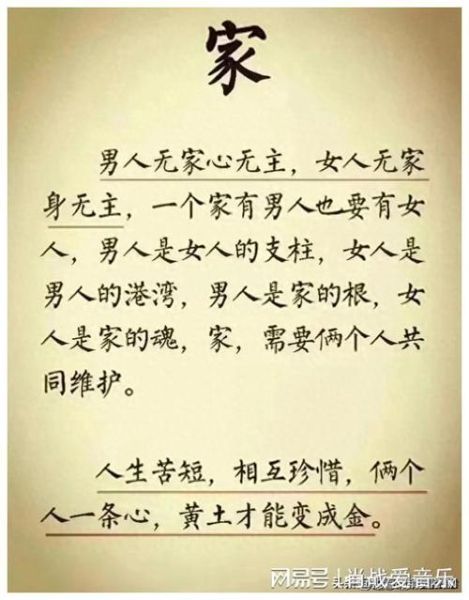 家
男人无家心无主，女人无家
身无主，一个家有男人也要有女
人，男人是女人的支柱，女人是
男人的港湾，男人是家的根，女
人是家的魂，家，需要俩个人共
同维护。
人生苦短，相互珍惜，俩个
人一条心，黄土才能变成金。
网易号 | 肖战爱音乐